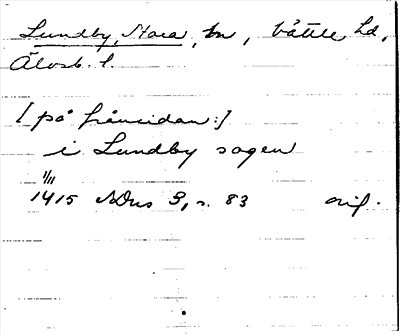 Lundby, Stora, sn, Vättle hd,
Älvsb. l.
[på frånsidan:]
i Lundby sogen
1/11
1415 NDns 3, s. 83 orig.